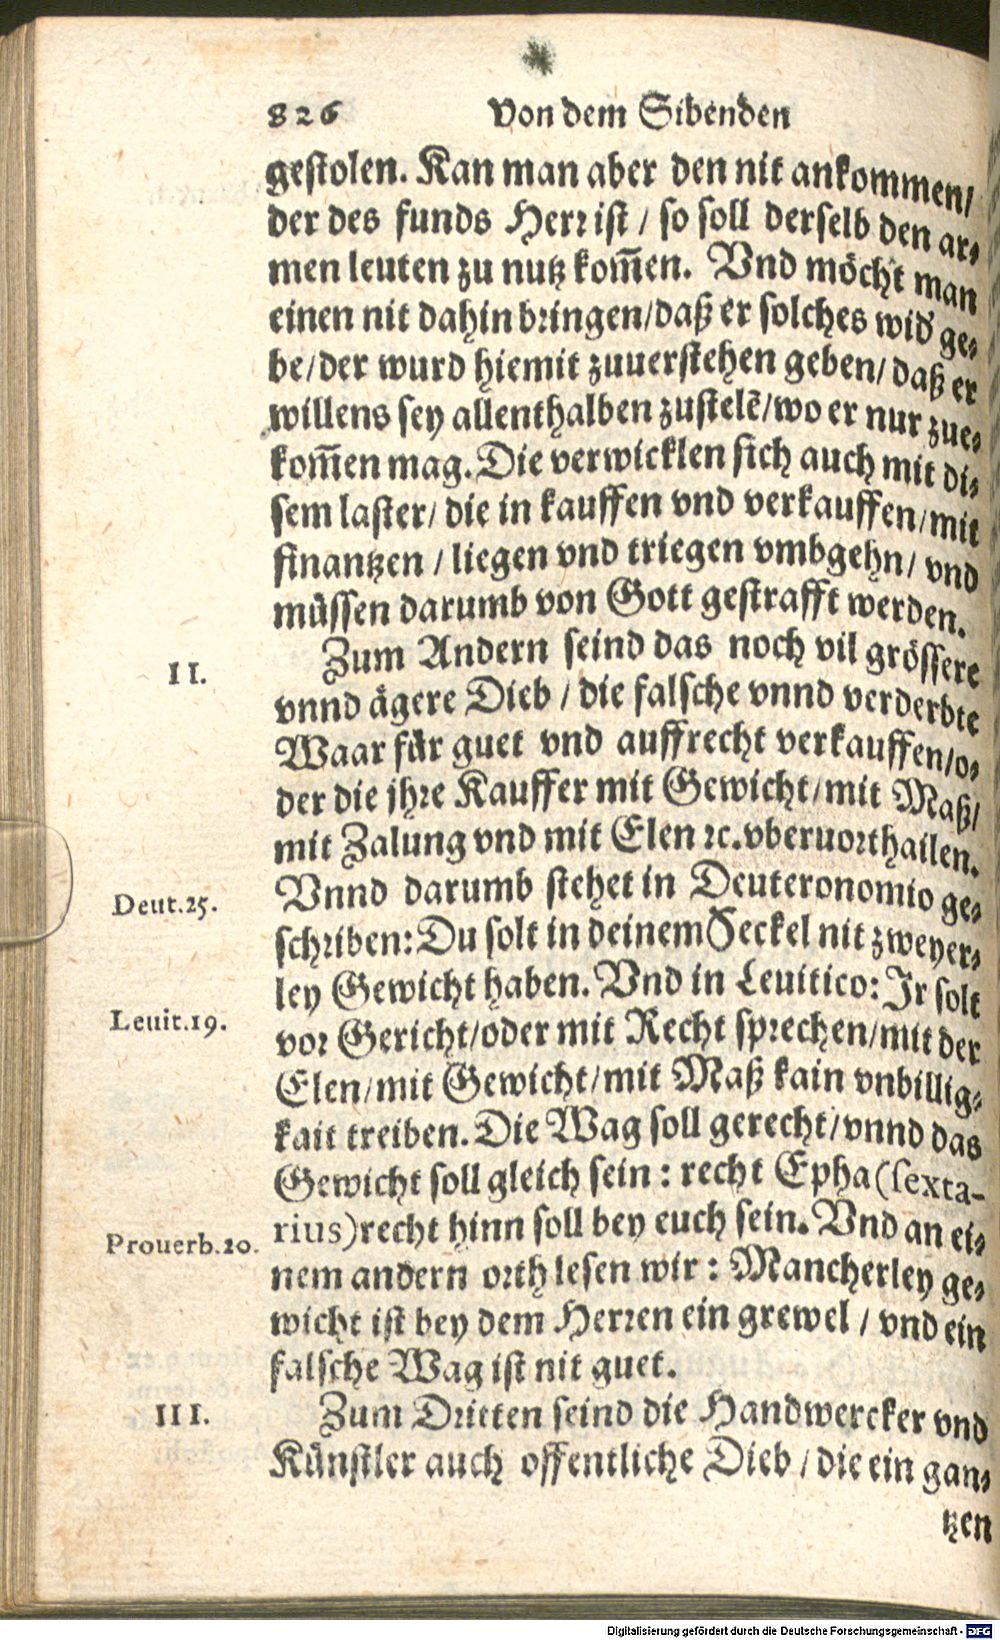 826 Von dem Sibenden
gestolen. Kan man aber den nit ankommen/
der des funds Herr ist / so soll derselb den ar⸗
men leuten zu nutz kom̃en. Vnd möcht man
einen nit dahin bringen/daß er solches wid' ge⸗
be/der wurd hiemit zuuerstehen geben/ daß er
willens sey allenthalben zustelẽ/wo er nur zue⸗
kom̃en mag. Die verwicklen sich auch mit di⸗
sem laster/ die in kauffen vnd verkauffen/mit
finantzen / liegen vnd triegen vmbgehn/ vnd
müssen darumb von Gott gestrafft werden.
II.
Zum Andern seind das noch vil grössere
vnnd ägere Dieb / die falsche vnnd verderbte
Waar für guet vnd auffrecht verkauffen/o⸗
der die jhre Kauffer mit Gewicht/mit Maß/
mit Zalung vnd mit Elen ꝛc. vberuorthailen.
Deut.25.
Vnnd darumb stehet in Deuteronomio ge⸗
schriben: Du solt in deinem Seckel nit zweyer⸗
ley Gewicht haben. Vnd in Leuitico: Jr solt
Leuit.19.
vor Gericht/oder mit Recht sprechen/mit der
Elen/mit Gewicht/mit Maß kain vnbillig⸗
kait treiben. Die Wag soll gerecht/vnnd das
Gewicht soll gleich sein : recht Epha (sexta-
rius) recht hinn soll bey euch sein. Vnd an ei⸗
Prouerb.20.
nem andern orth lesen wir : Mancherley ge⸗
wicht ist bey dem Herren ein grewel / vnd ein
falsche Wag ist nit guet.
III.
Zum Dritten seind die Handwercker vnd
Künstler auch offentliche Dieb / die ein gan⸗
tzen
Digitalisierung gefördert durch die Deutsche Forschungsgemeinschaft - DFG